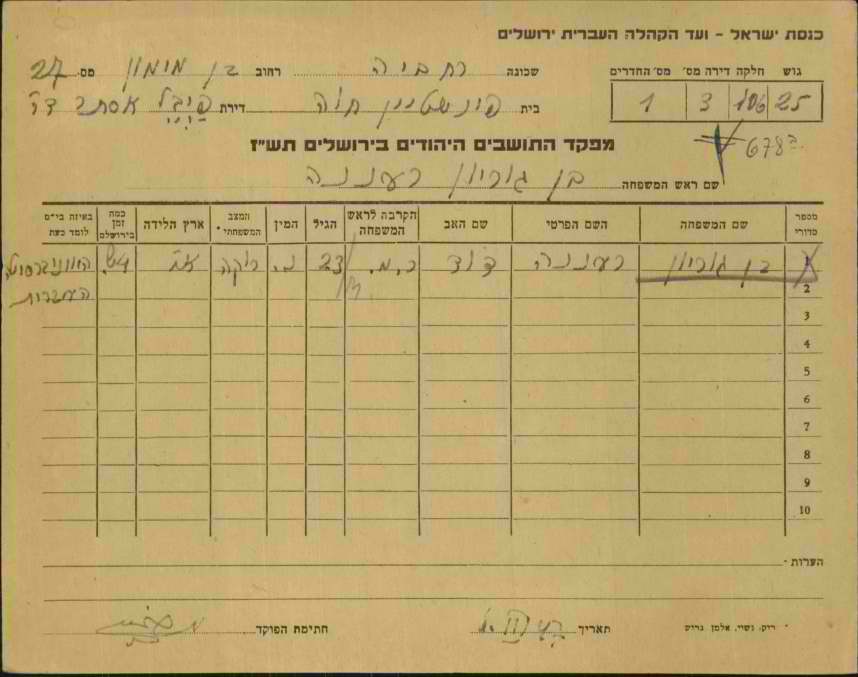 כנסת ישראל - ועד הקהלה העברית ירושלים
שכונה רחביה רחוב בן מימון מס. 27
גוש חלקה דירה מס׳ מס׳ החדרים
25 106 3 1
בית פינשטיין חוה דירת פייגל אסתר דר
מפקד התושבים היהודים בירושלים תש״ז
678
שם ראש המשפחה בן גוריון רעננה
מספר סדורי שם המשפחה השם הפרטי שם האב הקרבה לראש המשפחה הגיל המין המצב המשפחתי* ארץ הלידה כמה זמן בירושלים באיזה בי״ס לומד כעת
1 בן גוריון רעננה דוד ר.מ. 23 נ. ריקה א״י 4 ש. האוניברסיטה העברית
2
3
4
5
6
7
8
9
10
הערות
* ריק, נשוי, אלמן, גרוש תאריך חתימת הפוקד